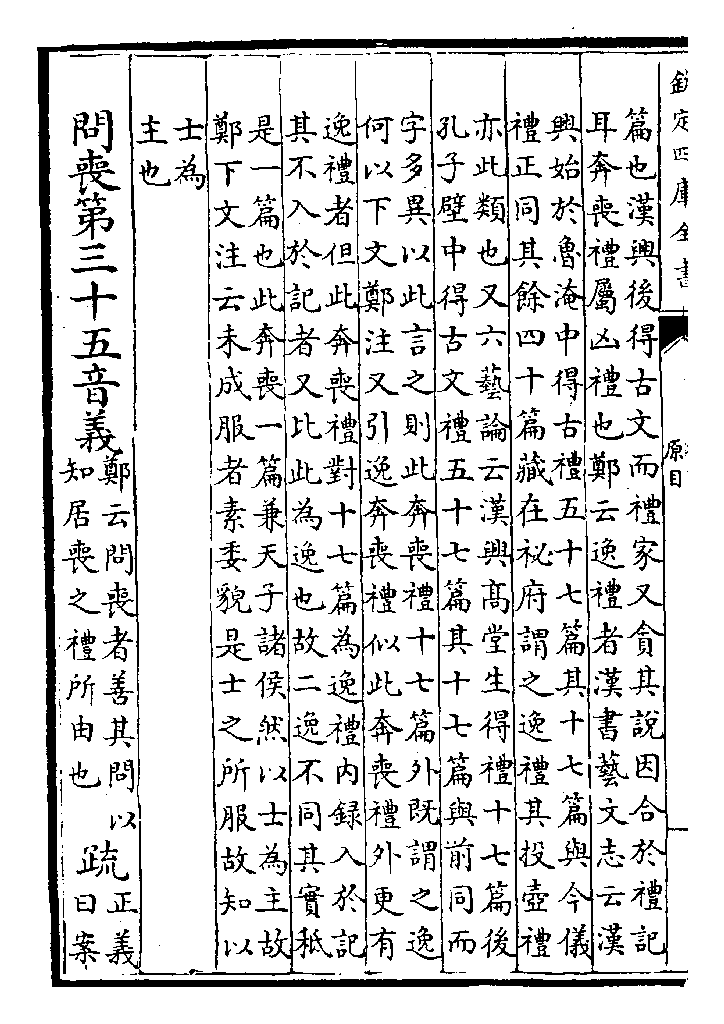 欽定四庫全書
原目
篇也漢興後得古文而禮家又貪其說因合於禮記
耳奔喪禮屬凶禮也鄭云逸禮者漢書藝文志云漢
興始於魯淹中得古禮五十七篇其十七篇與今儀
禮正同其餘四十篇藏在祕府謂之逸禮其投壺禮
亦此類也又六藝論云漢興髙堂生得禮十七篇後
孔子壁中得古文禮五十七篇其十七篇與前同而
字多異以此言之則此奔喪禮十七篇外既謂之逸
何以下文鄭注又引逸奔喪禮似此奔喪禮外更有
逸禮者但此奔喪禮對十七篇為逸禮内録入於記
其不入於記者又比此為逸也故二逸不同其實秪
是一篇也此奔喪一篇兼天子諸侯然以士為主故
鄭下文注云未成服者素委貌是士之所服故知以
士為
主也
問喪第三十五音義
鄭云問喪者善其問以
知居喪之禮所由也
疏
正義
曰案